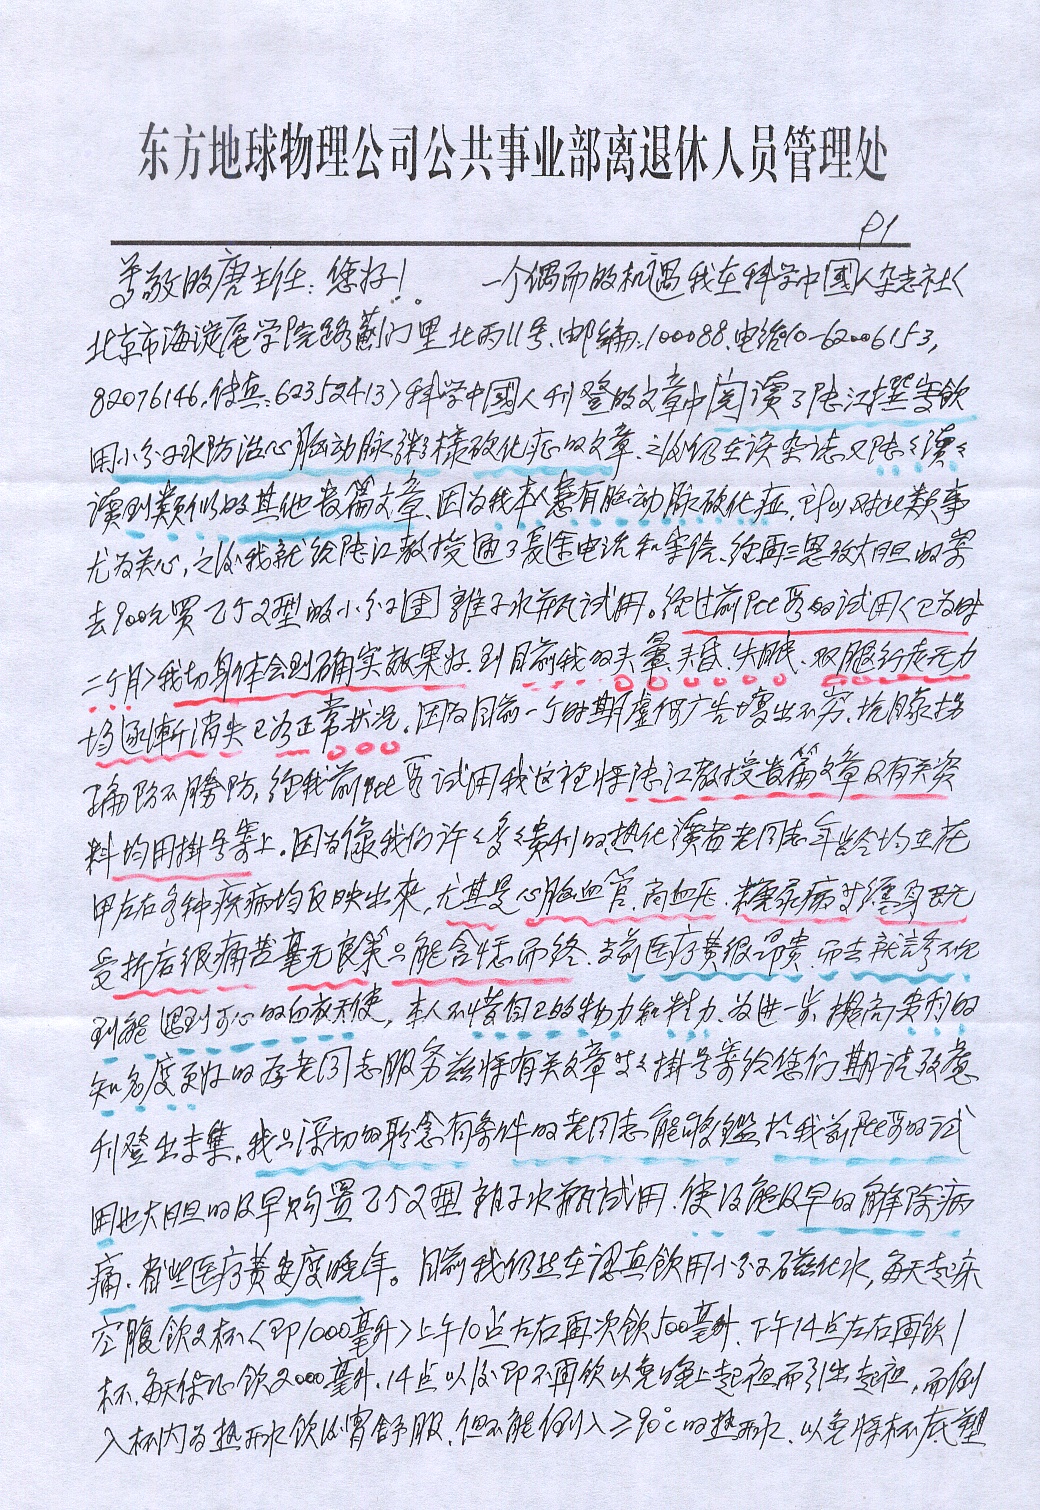 东方地球物理公司公共事业部离退休人员管理处
P1
尊敬的唐主任：您好！ 一个偶而的机遇我在科学中國人杂志社〈
北京市海淀區学院路蓟门里北西11号、邮编:100088、电话010-62006153,
82076146.传真:62352413〉科学中國人刊登的文章中阅读了陆江撰写饮
用小分子水防治心脑动脉粥样硬化症的文章、之后仍在该杂志又陆々续々
读到类似的其他数篇文章、因为我本人患有脑动脉硬化症,所以对此类事
尤为关心,之后我就给陆江教授通了長途电话和写信、经再三思考大胆的寄
去900元買了个2型的小分子团離子水瓶试用。经过前 的试用〈已为时
二个月〉我切身体会到确实效果好.到目前我的头暈、头昏、失眠、双腿行走无力
均逐漸消失已为正常状况。因为目前一个时期虚何广告層出不穷、坑朦拐
骗防不勝防,经我前 试用我这裡将陆江教授数篇文章及有关资
料均用掛号寄上。因为像我们许々多々貴刊的热心讀者老同志年龄均在花
甲左右各种疾病均反映出來,尤其是心脑血管、高血压、糖尿病 缠身
受折后很痛苦毫无良策只能含恨而终.当前医疗費很昂贵.而去就診不
到能遇到可心的白衣天使,本人不惜自己的物力和精力.为进一步提高贵刊的
知名度更好的为老同志服务兹将有关文章 掛号寄给您们期请 意
刊登出 集.我只深切的聆念有条件的老同志能够鑑於我前 的试
用也大胆的及早购置了个2型離子水瓶试用.使 能及早的解除病
痛.省些医疗費安度晚年。目前我仍然在認真飲用小分子磁化水,每天起床
空腹飲2杯〈即1000毫升〉上午10点左右再次飲500毫升、下午14点左右再飲1
杯.每天保证飲2000毫升.14点以后即不再飲以免晚上起夜而引出 ,而倒
入杯内为热开水飲后胃舒服.但不能倒入≥90℃的热开水、以免将杯底塑